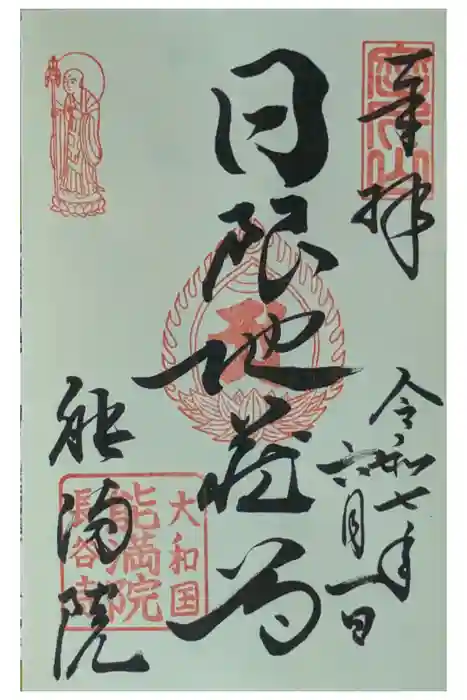 奉拝
令和七年
六月一日
日限地蔵尊
能満院
大和国
能満院
長谷寺